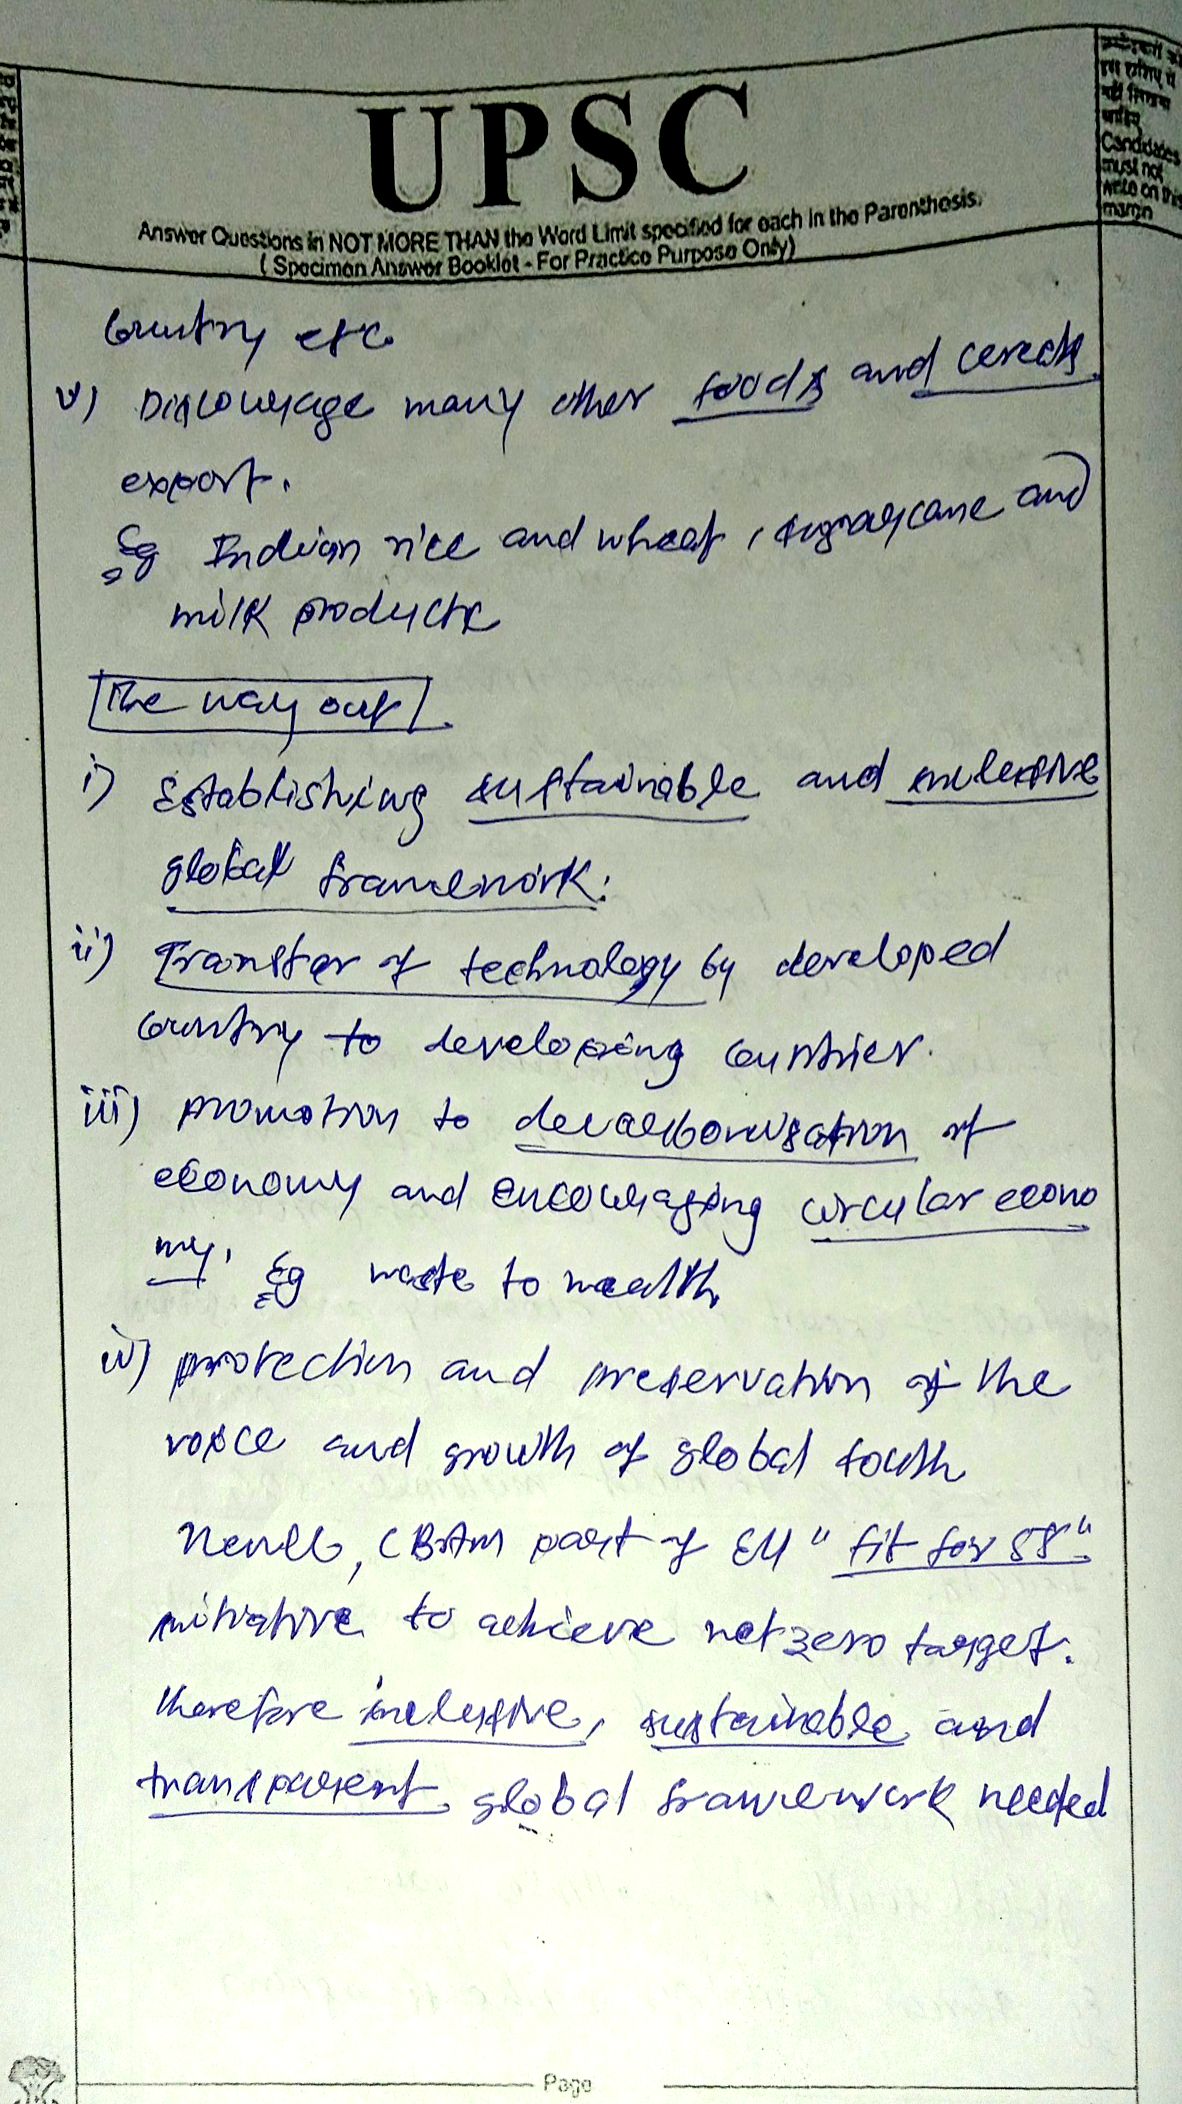 UPSC
Answer Questions in NOT MORE THAN the Word Limit specified for each in the Parenthesis.
( Specimen Answer Booklet - For Practice Purpose Only)
उम्मीदवारों को
इस हाशिए में
नहीं लिखना
चाहिए
Candidates
must not
write on this
margin
country etc.
v) Discourage many other foods and cereals
export.
Eg Indian rice and wheat, sugarcane and
milk products
The way out
i) Establishing sustainable and inclusive
global framework.
ii) Transfer of technology by developed
country to developing countries.
iii) promotion to decarbonisation of
economy and encouraging circular econo
my. Eg waste to wealth
iv) protection and preservation of the
voice and growth of global south
Hence, CBAM part of EU "fit for 55"
initiative to achieve net zero target.
therefore inclusive, sustainable and
transparent global framework needed
Page